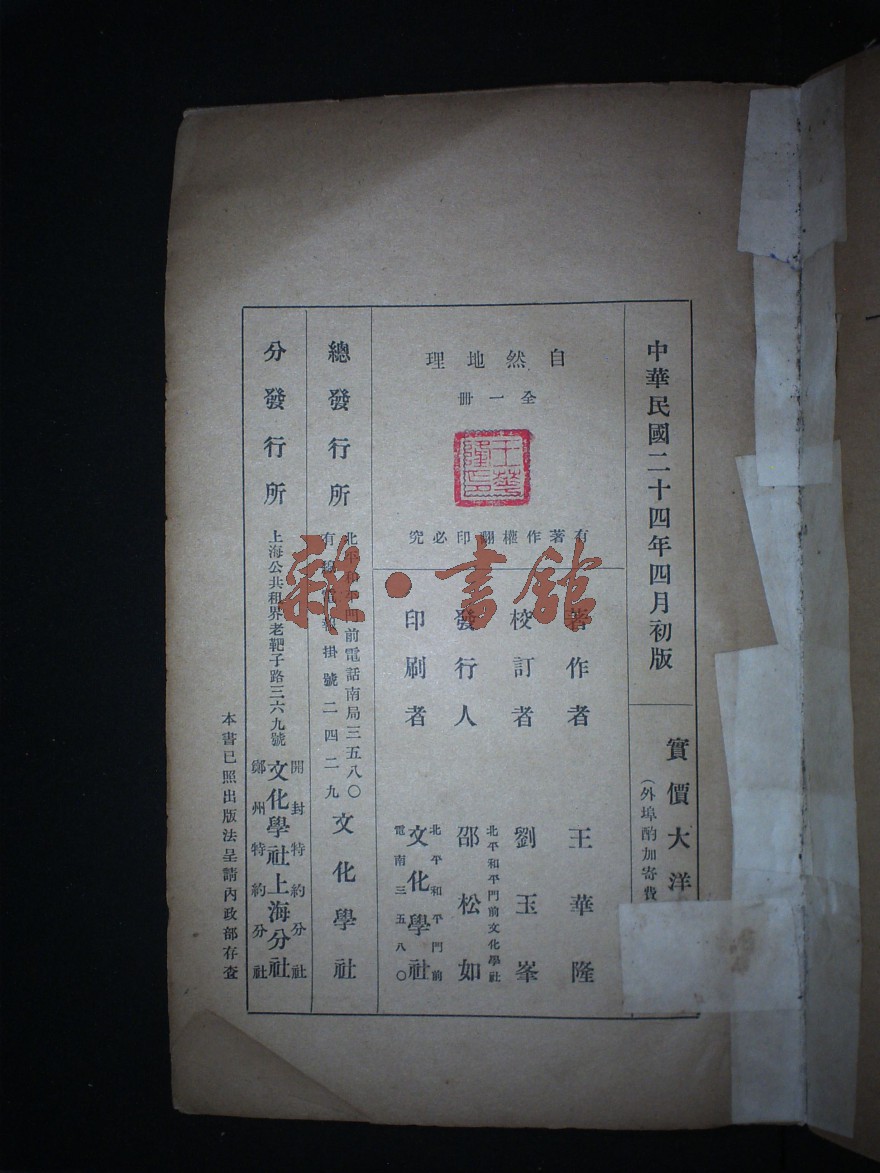 中華民國二十四年四月初版
實價大洋
（外埠酌加寄費
自然地理
全一冊
王華隆印
有著作權翻印必究
著作者 王華隆
校訂者 劉玉峯
北平和平門前文化學社
發行人 邵松如
北平和平門前
印刷者 文化學社
電南三五八〇
總發行所
北平和平門前電話南局三五八〇
有線電報掛號二四二九
文化學社
分發行所
上海公共租界老靶子路三六九號
開封特約分社
文化學社上海分社
鄭州特約分社
本書已照出版法呈請內政部存查
雜·書館